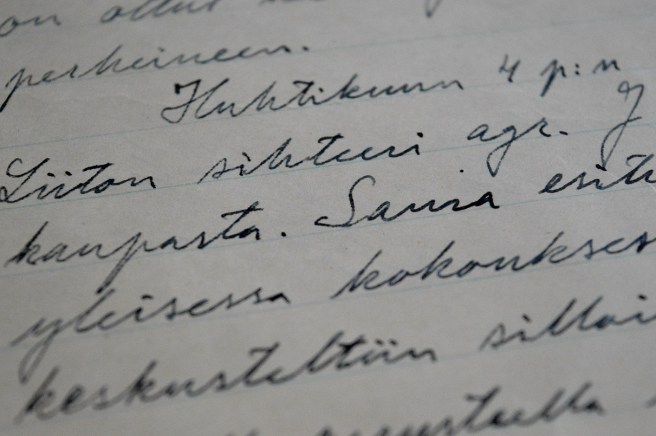 on ollut
perheineen.
Huhtikuun 4 p:n
Liiton sihteeri agr. J
kaupasta. Sama esit
yleisessä kokoukses
keskusteltiin silloi
perusteella